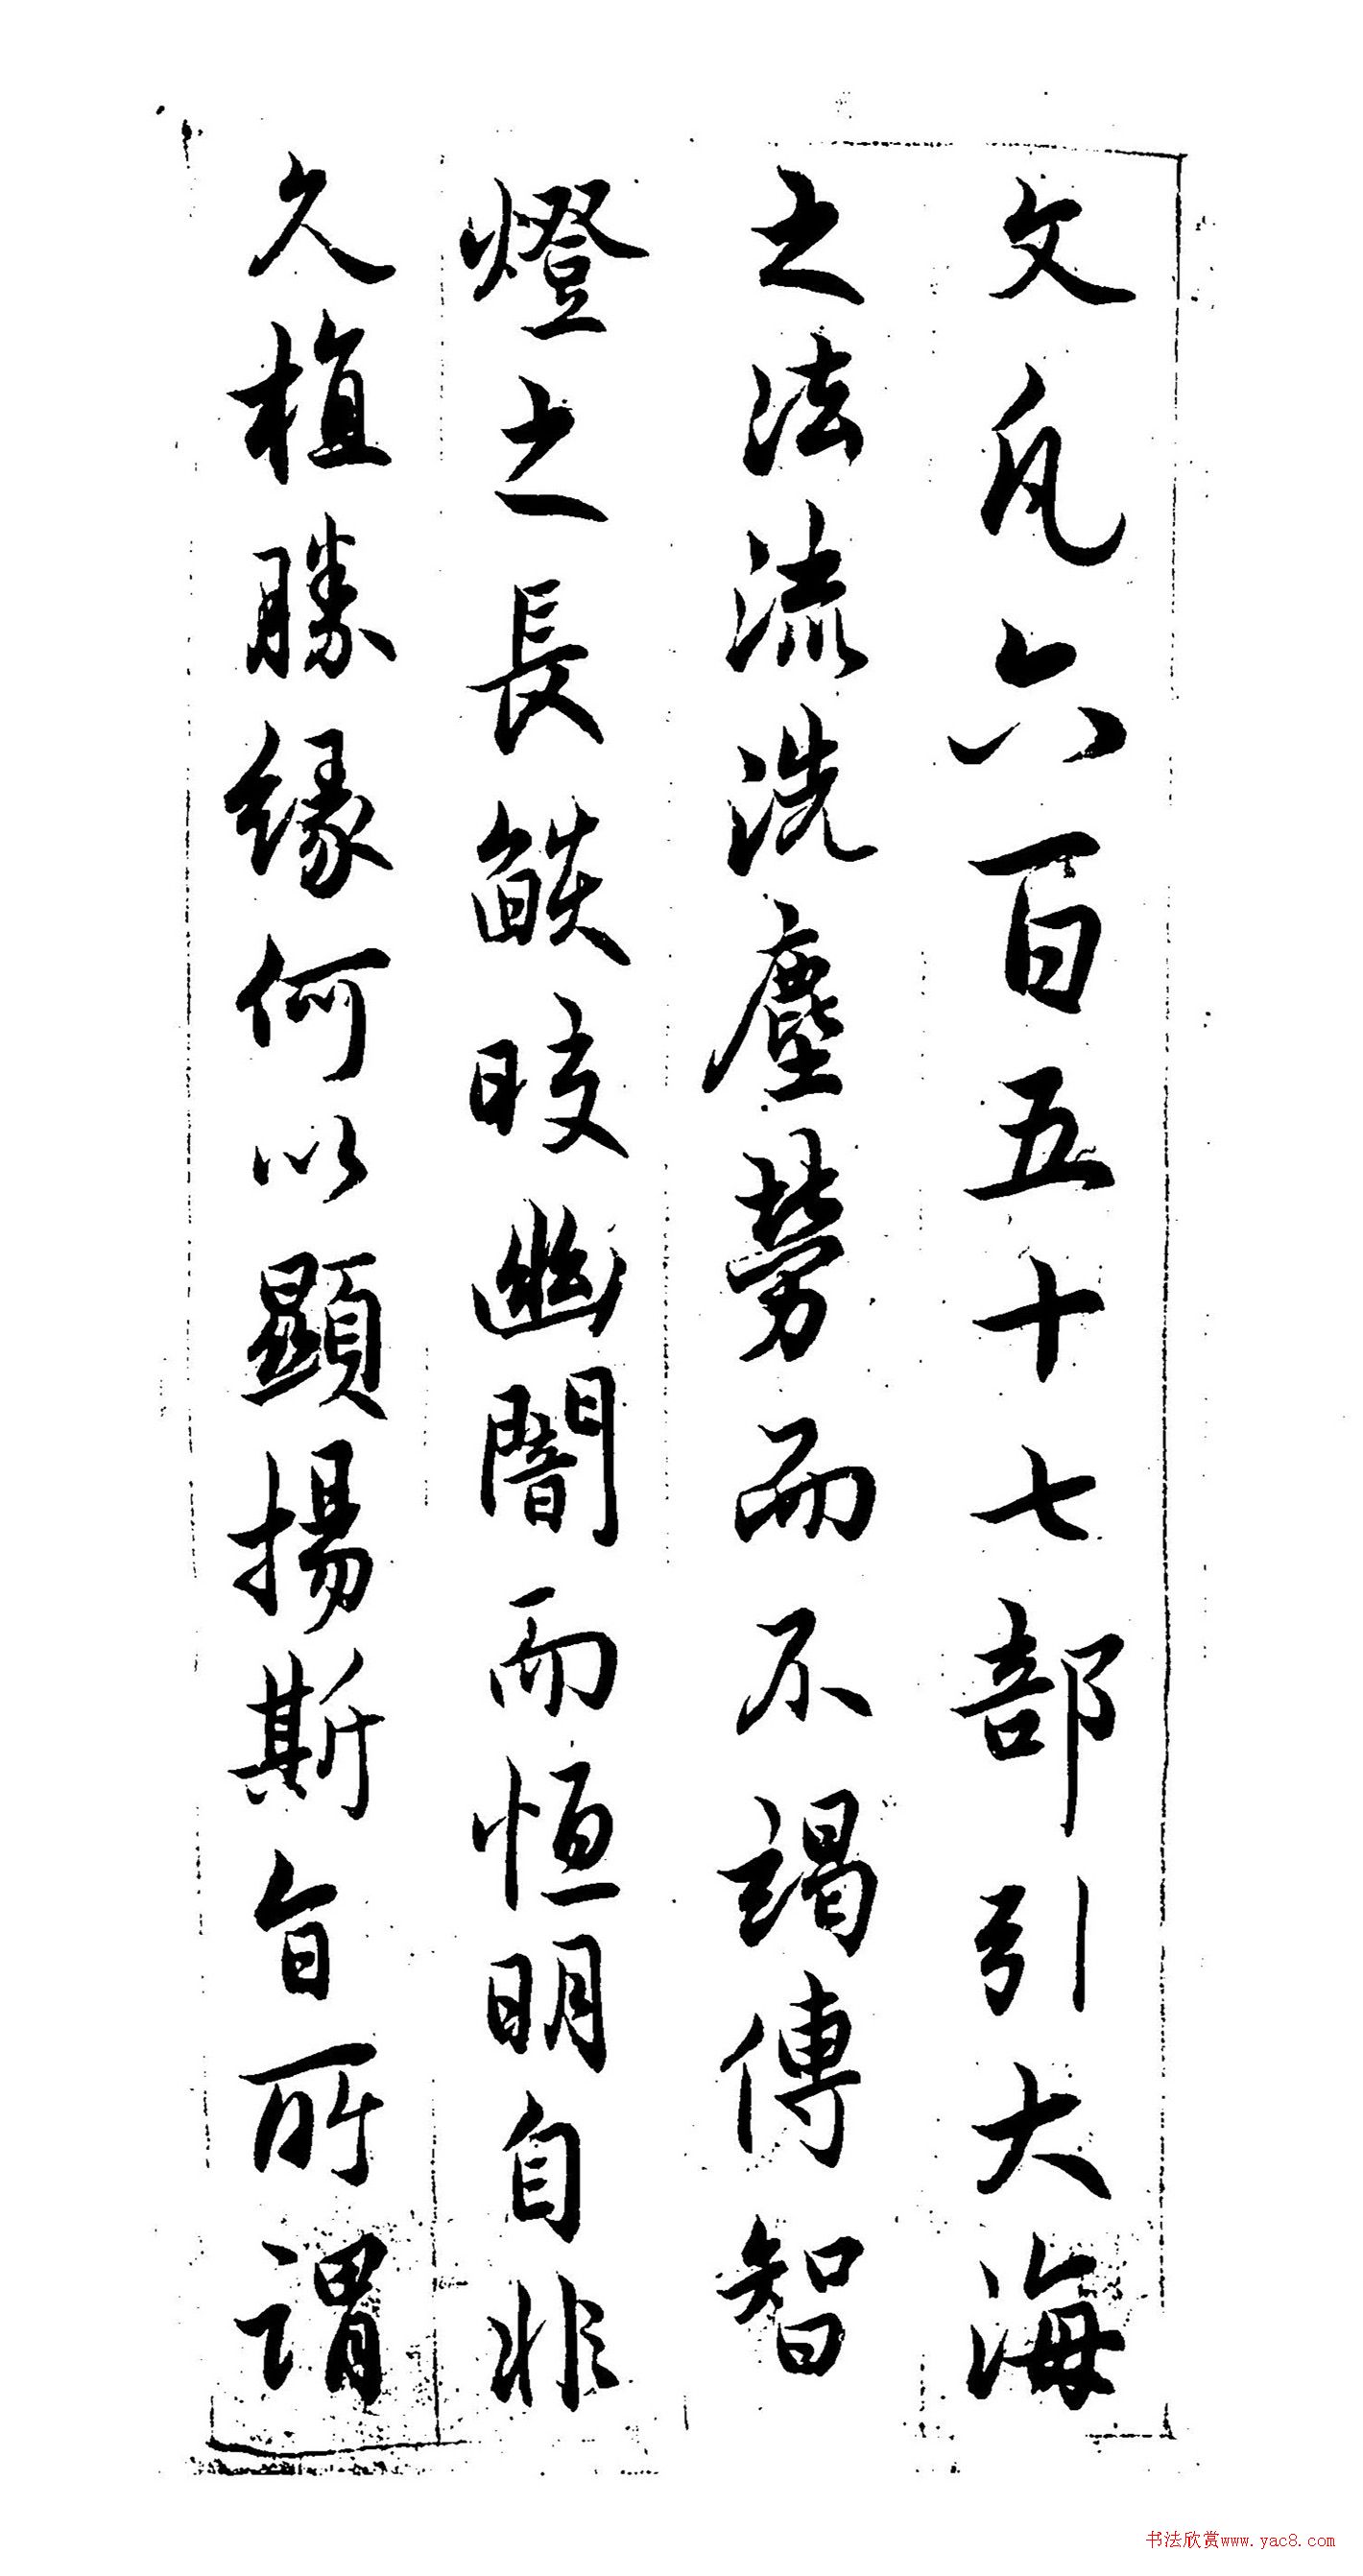 文凡六百五十七部引大海
之法流洗塵勞而不竭傳智
燈之長燄皎幽闇而恒明自非
久植勝緣何以顯揚斯旨所謂
书法欣赏www.yac8.com